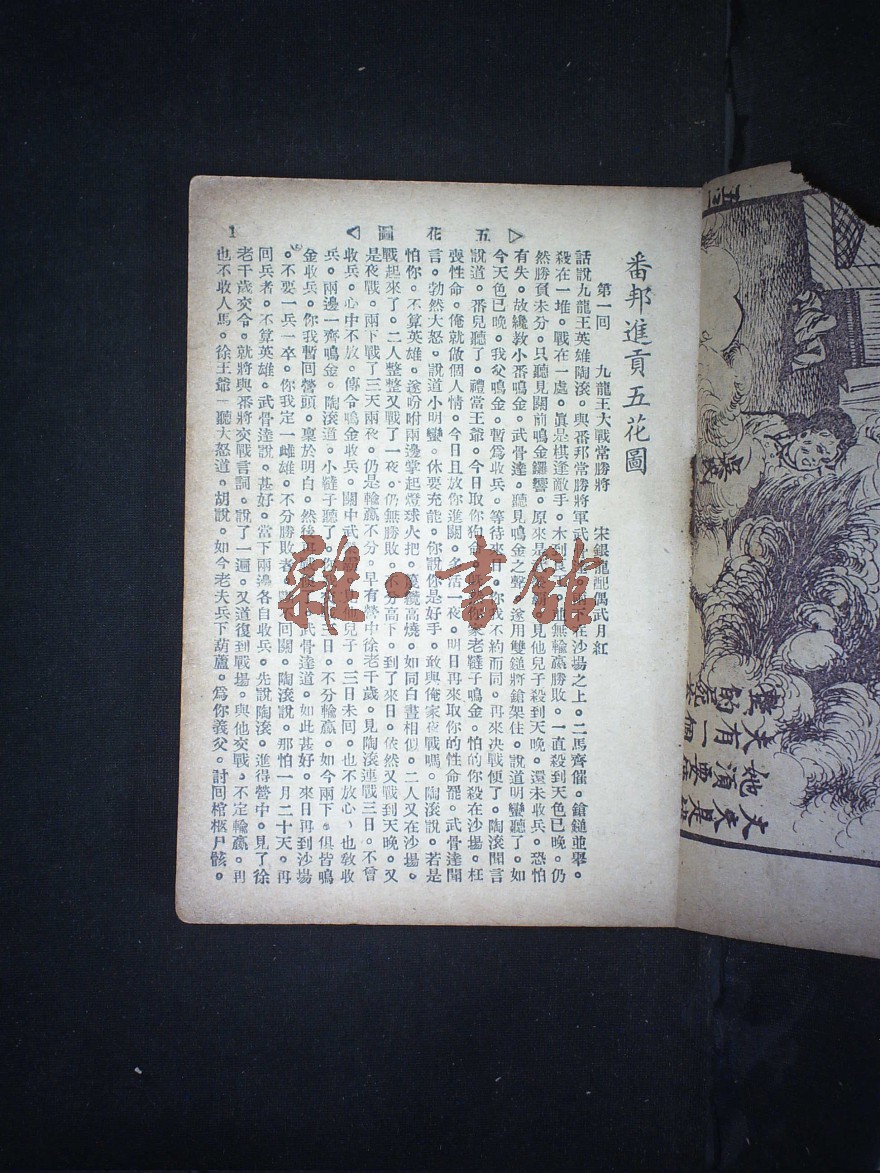 番邦進貢五花圖
第一回　九龍王大戰常勝將　宋銀龍配偶武月紅
▷五花圖◁
1
話說九龍王英雄陶滾。與番邦常勝將軍武 在沙場之上。二馬齊催。鎗鎚並舉。
殺在一堆。戰在一處。眞是棋逢敵手。木 並無輸贏勝敗。一直殺到天色已晚。仍
然勝負未分。只聽見關前鳴金鑼響。原來是 見他兒子殺到天晚。還未收兵。恐怕
有失。故纔教小番鳴金。武骨達。聽見鳴金之聲。遂用雙鎚將鎗架住。說道明蠻聽了。如
今天色已晚。我父鳴金。暫爲收兵。等待來日。你我不約而同。再來决戰便了。陶滾聞言
說道。番兒聽了。禮當王爺。今日取你狗命。 你家老韃子鳴金。怕的你殺在沙場。枉
喪性命。俺就做個人情。今日且放你進關。 活一夜。明日再來取你的性命罷。武骨達聞
言。勃然大怒。說道小明蠻。休要充能。你說你是好手。敢與俺家夜戰嗎。陶滾說。若是
怕你。不算英雄。遂吩咐兩邊掌起燈球火把。 高燒。如同白晝相似。二人又在沙場。
戰起來了。二人整整又戰了一夜。仍無勝敗。不分高下。到了來日。依然又戰到天晚。又
是夜戰。兩下戰了三天兩夜。仍是輸贏不分。早有營中徐老千歲。見陶滾連戰三日。不曾
收兵。心中不放。傳令鳴金收兵。關中武 見他兒子。三日未回。也不放心、也教收
兵。兩邊一齊鳴金。陶滾道。小韃子聽了。你 三日。不分輸贏。如今兩下。俱皆鳴
金收兵。你我暫回營頭。稟於明白。然後再 武骨達道。如此甚好。來日再到沙場
。不要一兵一卒。你我定一雌雄。不分勝敗者。 不回關。陶滾說。那怕一月二十天。再
回兵者。不算英雄。武骨達說。甚好。當下兩邊各自收兵。先說陶滾。進得營中。見了徐
老千歲交令。就將與番將交戰言詞。說了一遍。又道復到戰塲。與他交戰。不定輸贏。再
也不收人馬。徐王爺一聽大怒道。胡說。如今老夫兵下葫蘆。爲你義父。討回棺柩尸骸。
雜·書館